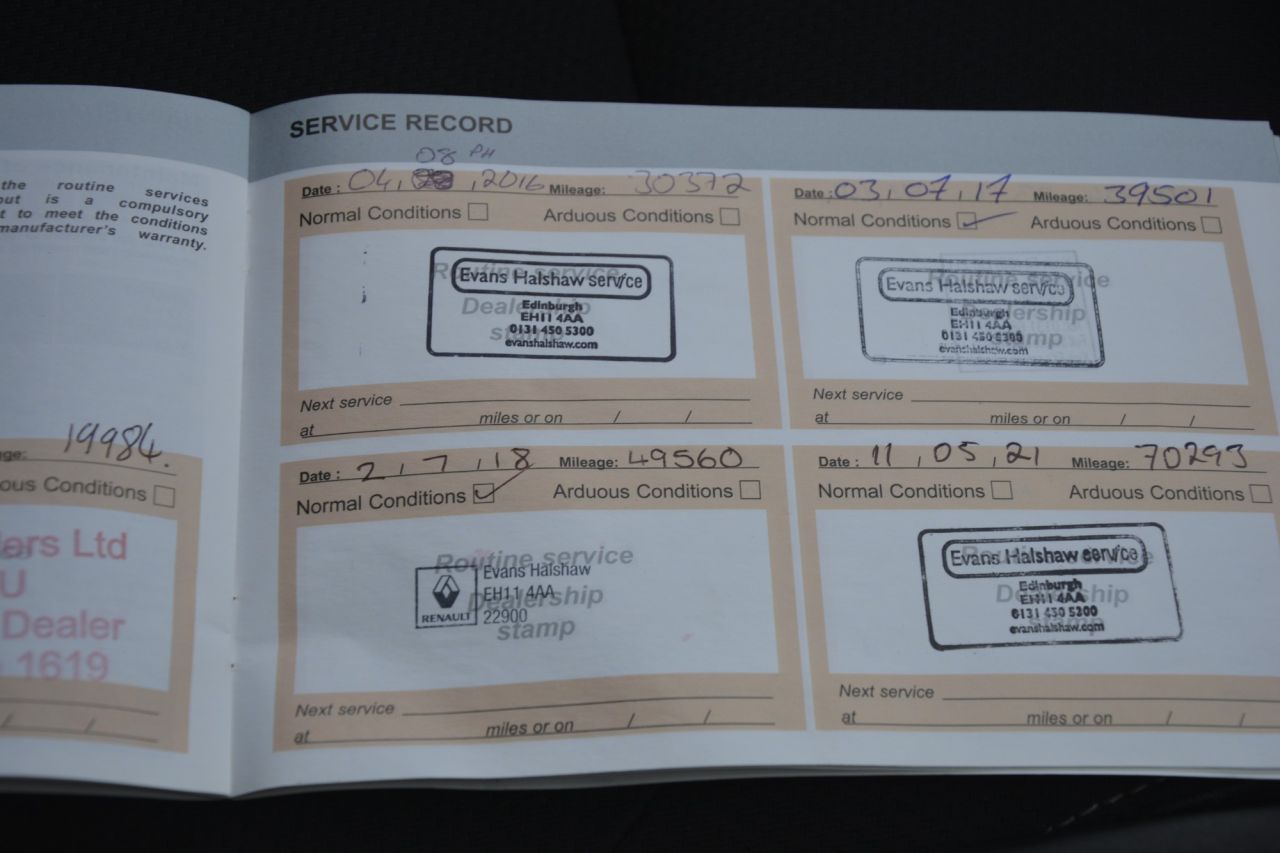 the routine services
out is a compulsory
t to meet the conditions
manufacturer's warranty.
ge: 19984.
ous Conditions
ers Ltd
U
Dealer
1619
SERVICE RECORD
08 PH
Date: 04, , 2016 Mileage: 30372
Normal Conditions Arduous Conditions
Routine service
Dealership
stamp
Evans Halshaw service
Edinburgh
EH11 4AA
0131 450 5300
evanshalshaw.com
Next service
at miles or on / /
Date: 03, 07, 17 Mileage: 39501
Normal Conditions Arduous Conditions
Routine service
Dealership
stamp
Evans Halshaw service
Edinburgh
EH11 4AA
0131 450 5300
evanshalshaw.com
Next service
at miles or on / /
Date: 2, 7, 18 Mileage: 49560
Normal Conditions Arduous Conditions
Routine service
Dealership
stamp
RENAULT
Evans Halshaw
EH11 4AA
22900
Next service
at miles or on / /
Date: 11, 05, 21 Mileage: 70293
Normal Conditions Arduous Conditions
Routine service
Dealership
stamp
Evans Halshaw service
Edinburgh
EH11 4AA
0131 450 5300
evanshalshaw.com
Next service
at miles or on / /